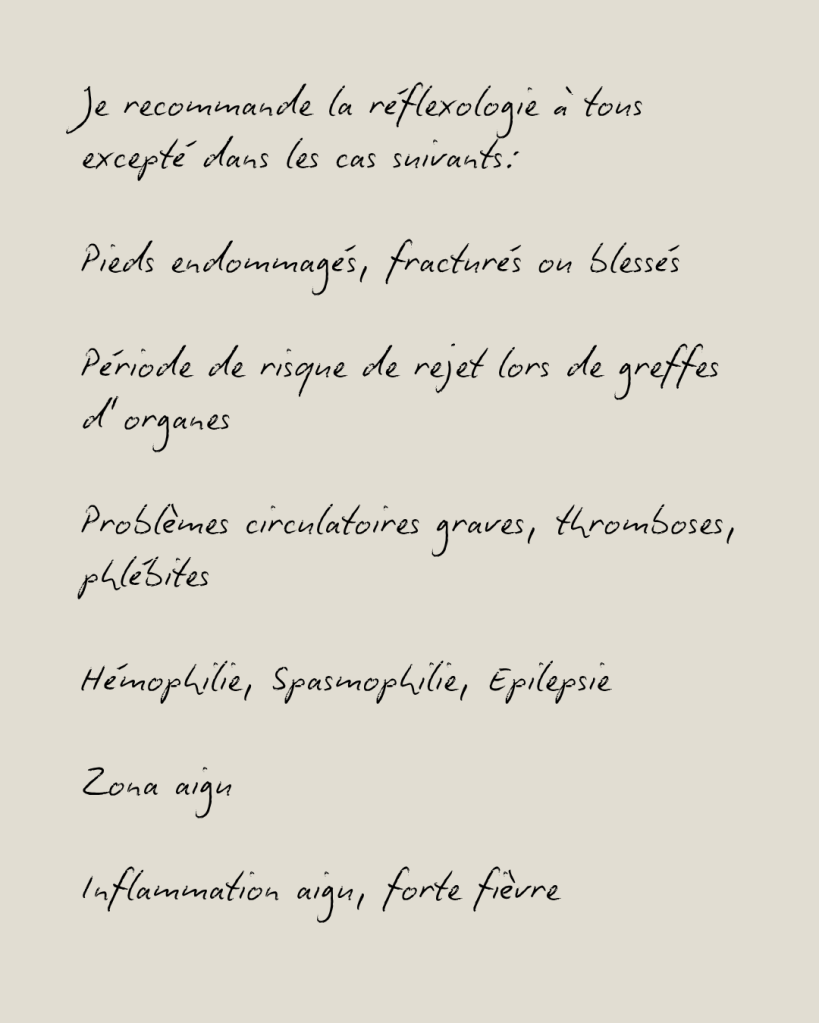 Je recommande la réflexologie à tous
excepté dans les cas suivants:
Pieds endommagés, fracturés ou blessés
Période de risque de rejet lors de greffes
d'organes
Problèmes circulatoires graves, thromboses,
phlébites
Hémophilie, Spasmophilie, Epilepsie
Zona aigu
Inflammation aigu, forte fièvre